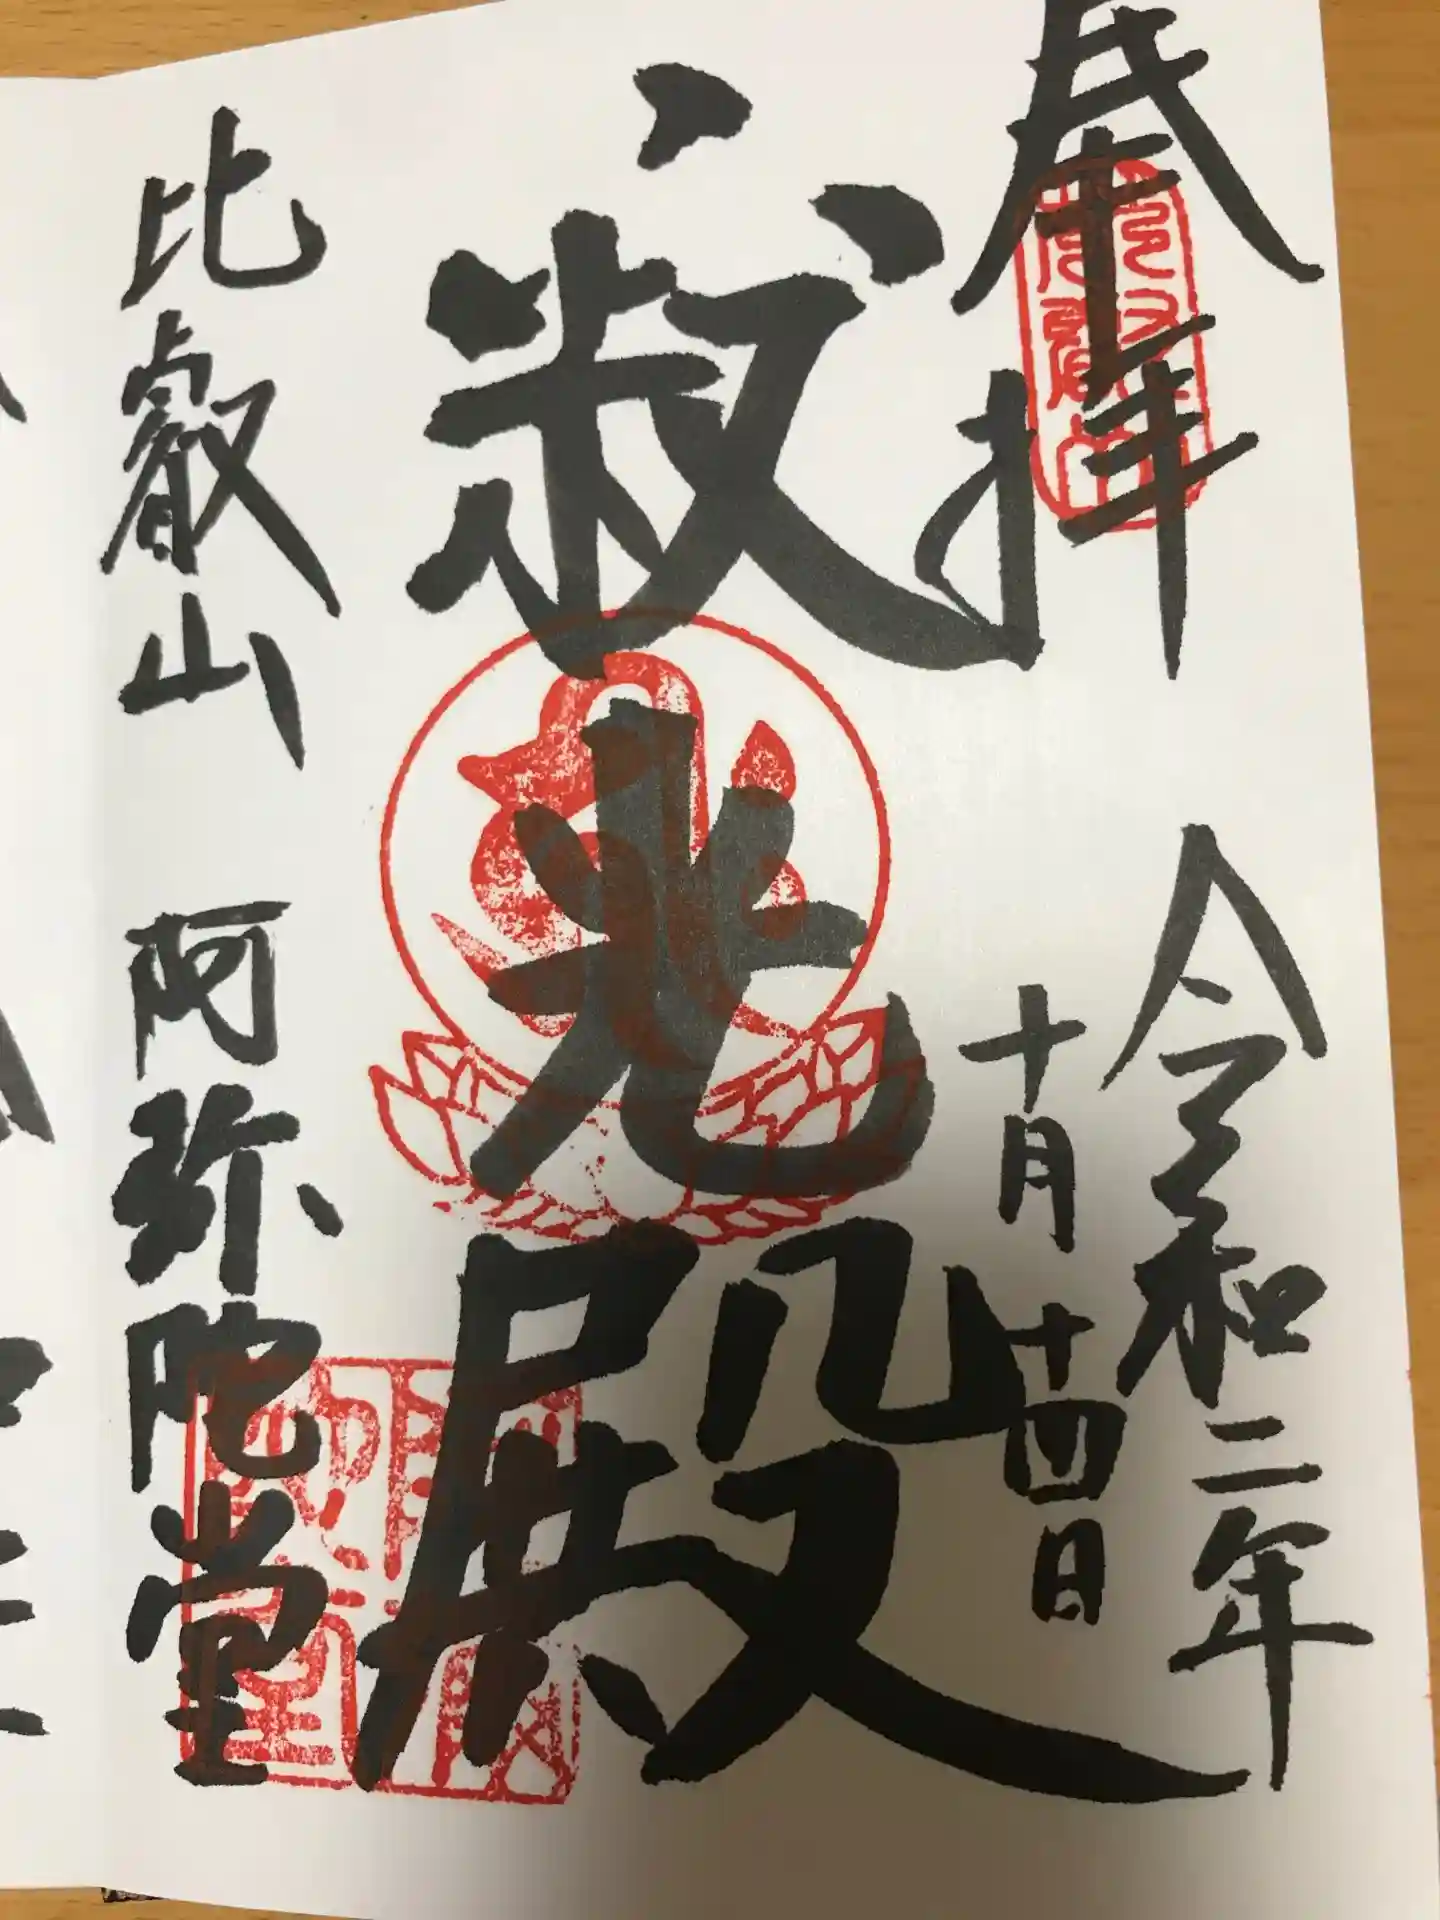 奉拝
令和二年
十月十四日
寂光殿
比叡山 阿弥陀堂